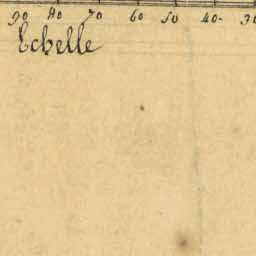 90 80 70 60 50 40. 30
Echelle